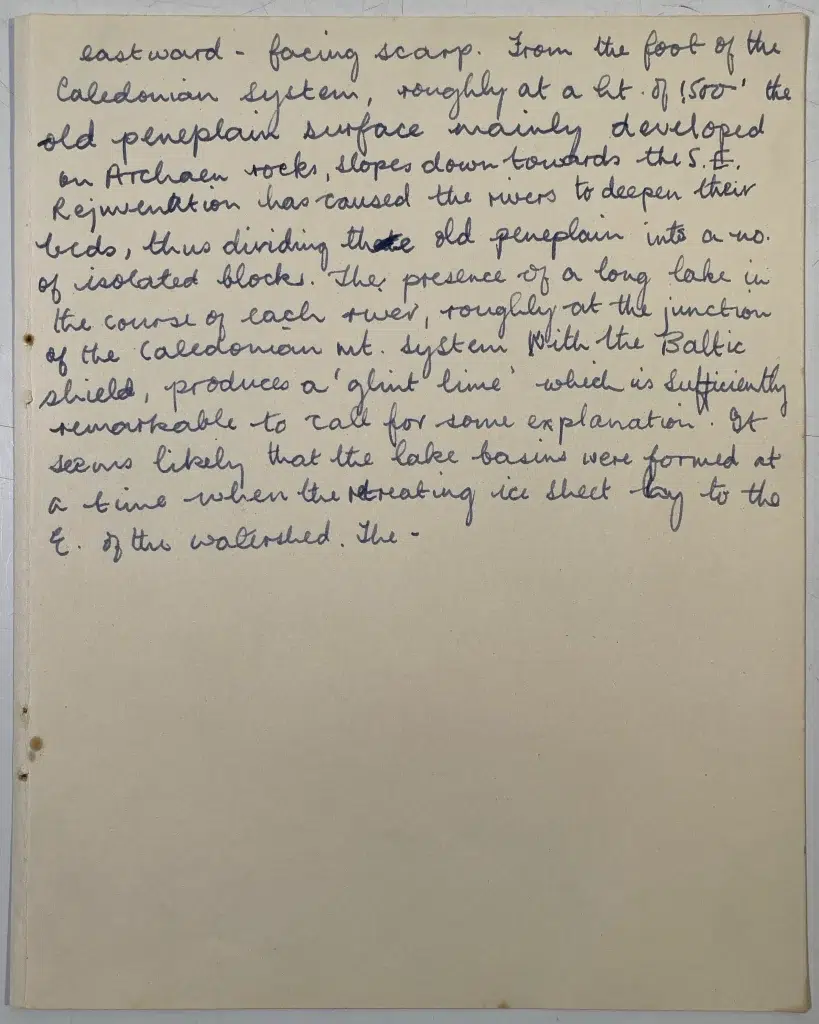 eastward - facing scarp. From the foot of the
Caledonian system, roughly at a ht. of 1500' the
old peneplain surface mainly developed
on Archaen rocks, slopes down towards the S.E.
Rejuventation has caused the rivers to deepen their
beds, thus dividing the old peneplain into a no.
of isolated blocks. The presence of a long lake in
the course of each river, roughly at the junction
of the Caledonian mt. system with the Baltic
shield, produces a 'glint line' which is sufficiently
remarkable to call for some explanation. It
seems likely that the lake basins were formed at
a time when the retreating ice sheet lay to the
E. of the watershed. The -